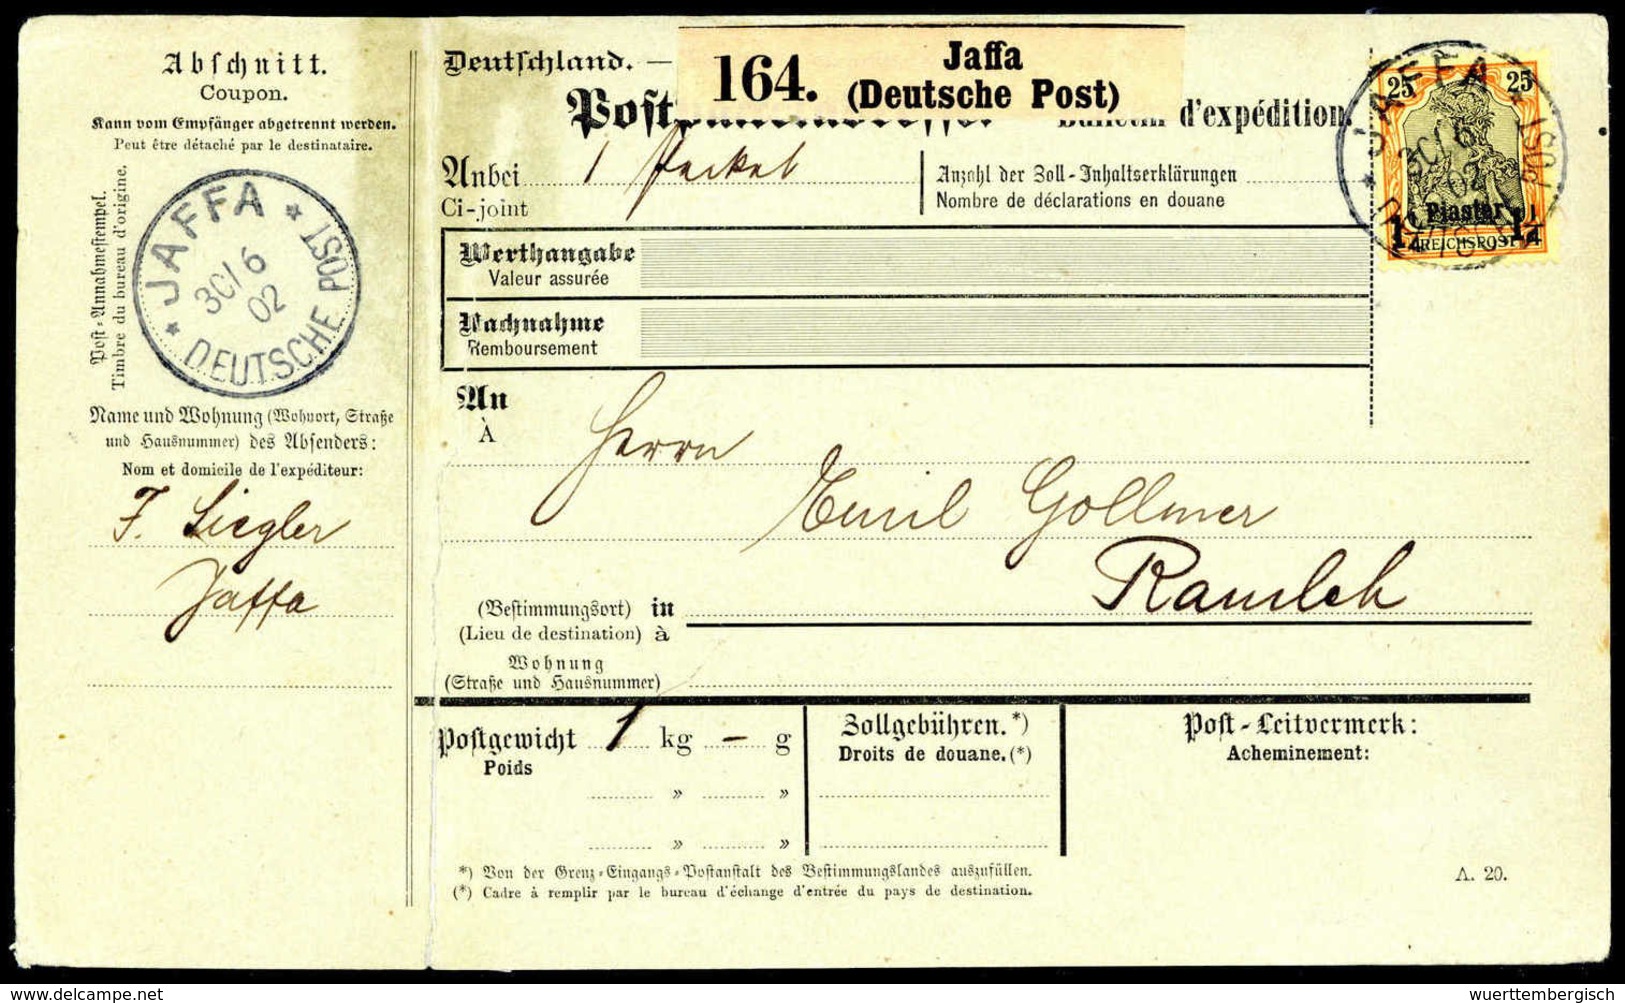 Abschnitt.
Coupon.
Kann vom Empfänger abgetrennt werden.
Peut être détaché par le destinataire.
Post-Annahmestempel.
Timbre du bureau d'origine.
* JAFFA *
30/6
02
DEUTSCHE POST
Name und Wohnung (Wohnort, Straße
und Hausnummer) des Absenders:
Nom et domicile de l'expéditeur:
F. Siegler
Jaffa
Deutschland. —
164. Jaffa
(Deutsche Post)
d'expédition.
Anbei 1 Packet
Ci-joint
Anzahl der Zoll-Inhaltserklärungen
Nombre de déclarations en douane
25 25
Piaster
1 1/4 1 1/4
REICHSPOST
JAFFA
30/6
02
DEUTSCHE POST
Werthangabe
Valeur assurée
Nachnahme
Remboursement
An
À
Herrn
Emil Gollmer
Ramleh
(Bestimmungsort) in
(Lieu de destination) à
Wohnung
(Straße und Hausnummer)
Postgewicht 1 kg — g
Poids
» »
» »
Zollgebühren.*)
Droits de douane.(*)
Post-Leitvermerk:
Acheminement:
*) Von der Grenz-Eingangs-Postanstalt des Bestimmungslandes auszufüllen.
(*) Cadre à remplir par le bureau d'échange d'entrée du pays de destination.
A. 20.
wuerttembergisch